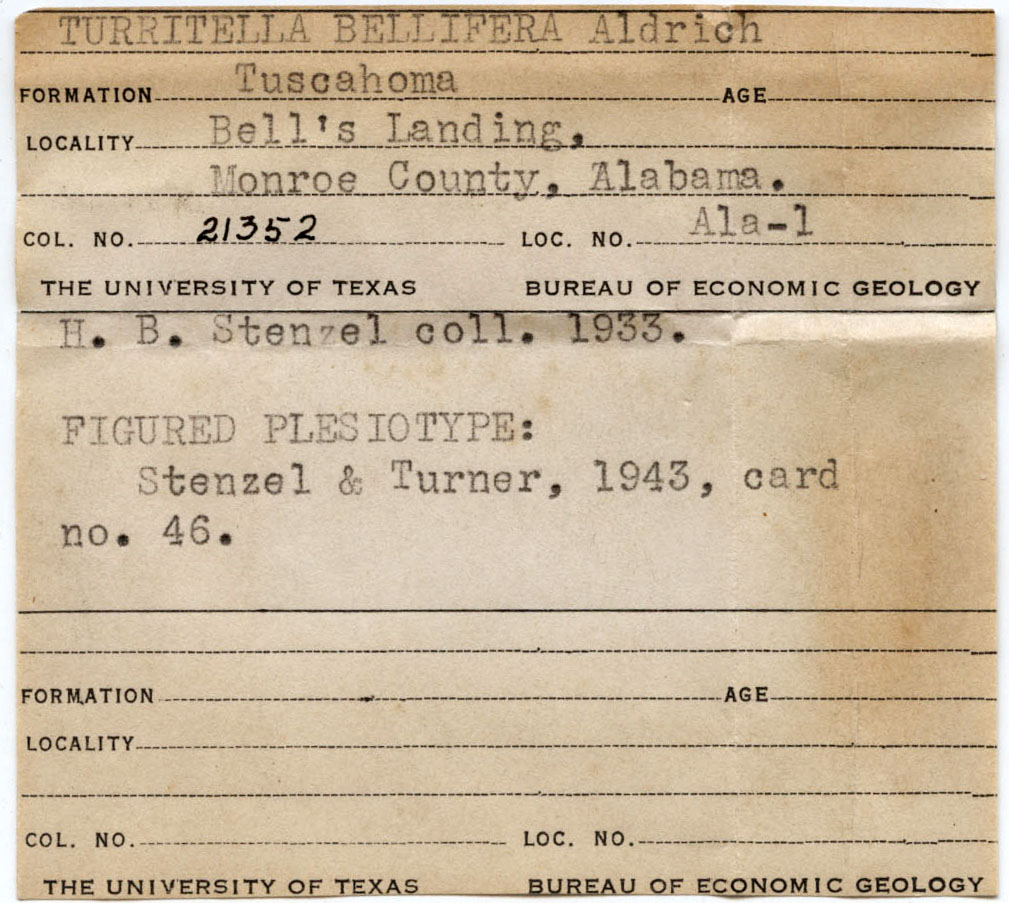 TURRITELLA BELLIFERA Aldrich
FORMATION Tuscahoma AGE
LOCALITY Bell's Landing,
Monroe County, Alabama.
COL. NO. 21352 LOC. NO. Ala-1
THE UNIVERSITY OF TEXAS BUREAU OF ECONOMIC GEOLOGY
H. B. Stenzel coll. 1933.
FIGURED PLESIOTYPE:
Stenzel & Turner, 1943, card
no. 46.
FORMATION AGE
LOCALITY
COL. NO. LOC. NO.
THE UNIVERSITY OF TEXAS BUREAU OF ECONOMIC GEOLOGY